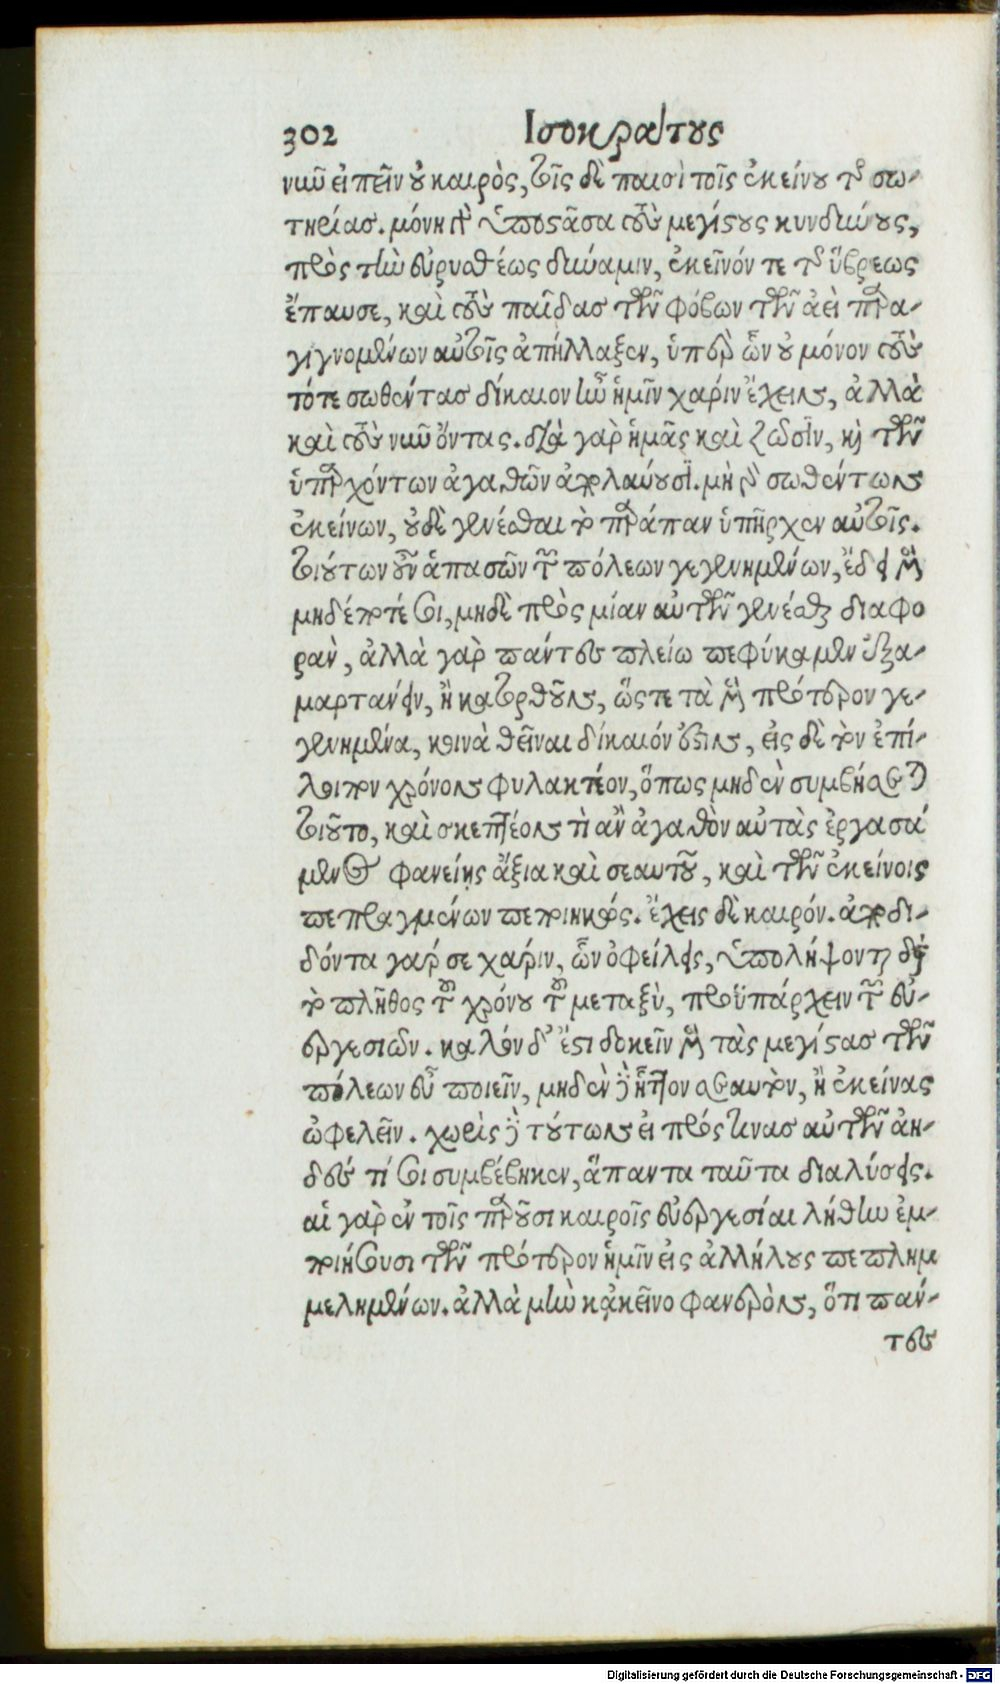 302 Ισοκράτους
νῦν εἰπεῖν οὐ καιρὸς, τοῖς δὲ παισὶ τοῖς ἐκείνου τῆς σω-
τηρίας. μόνη δ᾽ ὑποστᾶσα τοὺς μεγίστους κυνδύνους,
πρὸς τὴν εὐρυσθέως δύναμιν, ἐκεῖνόν τε τῆς ὕβρεως
ἔπαυσε, καὶ τοὺς παῖδας τῶν φόβων τῶν ἀεὶ παρα-
γιγνομένων αὐτοῖς ἀπήλλαξεν, ὑπὲρ ὧν οὐ μόνον τοὺς
τότε σωθέντας δίκαιον ἦν ἡμῖν χάριν ἔχειν, ἀλλὰ
καὶ τοὺς νῦν ὄντας. διὰ γὰρ ἡμᾶς καὶ ζῶσιν, καὶ τῶν
ὑπαρχόντων ἀγαθῶν ἀπολαύουσι. μὴ γὰρ σωθέντων
ἐκείνων, οὐδὲ γενέσθαι τὸ παράπαν ὑπῆρχεν αὐτοῖς.
τοιούτων οὖν ἁπασῶν τῶν πόλεων γεγενημένων, ἔδει μὲν
μηδέποτέ σοι, μηδὲ πρὸς μίαν αὐτῶν γενέσθαι διαφο
ρὰν, ἀλλὰ γὰρ πάντες πλείω πεφύκαμεν ἐξα-
μαρτάνειν, ἢ κατορθοῦν, ὥστε τὰ μὲν πρότερον γε-
γενημένα, κοινὰ θεῖναι δίκαιόν ἐστιν, εἰς δὲ τὸν ἐπί-
λοιπον χρόνον φυλακτέον, ὅπως μηδὲν συμβήσεται
τοιοῦτο, καὶ σκεπτέον τὶ ἂν ἀγαθὸν αὐτὰς ἐργασά
μενος φανείης ἄξια καὶ σεαυτοῦ, καὶ τῶν ἐκείνοις
πεπραγμένων πεποιηκώς. ἔχεις δὲ καιρόν. ἀποδι-
δόντα γάρ σε χάριν, ὧν ὀφείλεις, ὑπολήψονται διὰ
τὸ πλῆθος τοῦ χρόνου τοῦ μεταξὺ, προϋπάρχειν τῶν εὐ-
εργεσιῶν. καλὸν δ᾽ ἔστι δοκεῖν μὲν τὰς μεγίστας τῶν
πόλεων εὖ ποιεῖν, μηδὲν δὲ ἧττον σεαυτὸν, ἢ ἐκείνας
ὠφελεῖν. χωρὶς δὲ τούτων εἰ πρός τινας αὐτῶν ἀη-
δές τί σοι συμβέβηκεν, ἅπαντα ταῦτα διαλύσεις.
αἱ γὰρ ἐν τοῖς παροῦσι καιροῖς εὐεργεσίαι λήθην ἐμ-
ποιήσουσι τῶν πρότερον ἡμῖν εἰς ἀλλήλους πεπλημ
μελημένων. ἀλλὰ μὴν κἀκεῖνο φανερὸν, ὅτι πάν-
τες
Digitalisierung gefördert durch die Deutsche Forschungsgemeinschaft - DFG